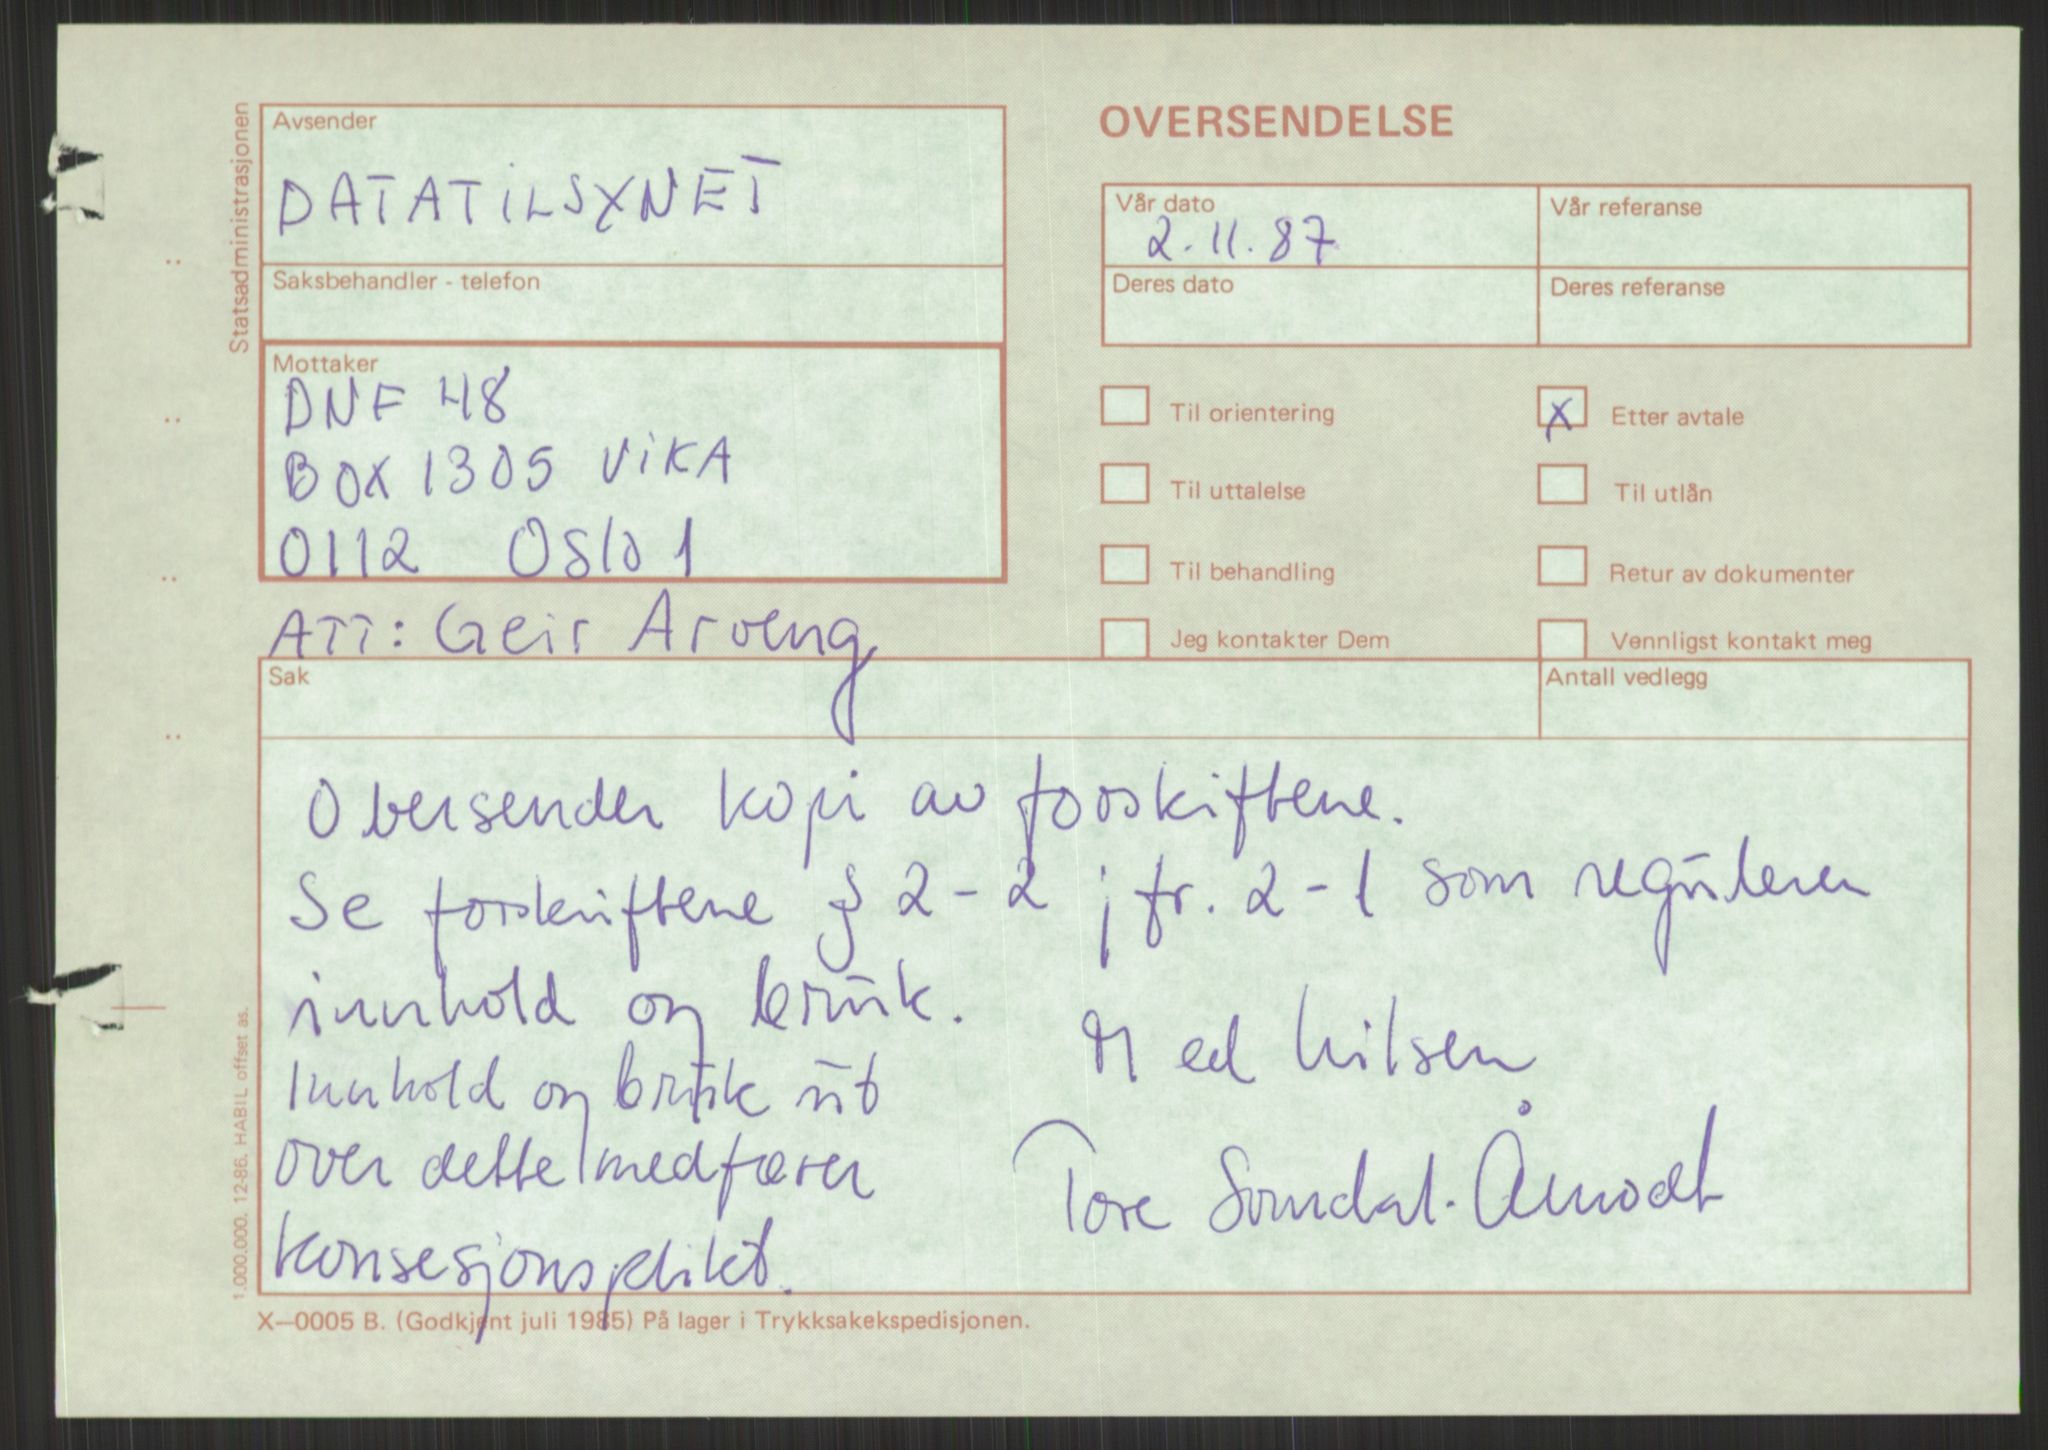 Statsadministrasjonen
Avsender
DATATILSYNET
Saksbehandler - telefon
Mottaker
DNF 48
BOX 1305 VIKA
0112 Oslo 1
ATT: Geir Arveng
OVERSENDELSE
Vår dato
2.11.87
Vår referanse
Deres dato
Deres referanse
Til orientering
X Etter avtale
Til uttalelse
Til utlån
Til behandling
Retur av dokumenter
Jeg kontakter Dem
Vennligst kontakt meg
Sak
Antall vedlegg
Oversender kopi av forskiftene.
Se forskriftene § 2-2 jfr. 2-1 som regulerer
innhold og bruk.
Innhold og bruk ut
over dette medfører
konsesjonsplikt.
Med hilsen
Tore Somdal-Åmodt
1.000.000. 12-86. HABIL offset as.
X—0005 B. (Godkjent juli 1985) På lager i Trykksakekspedisjonen.